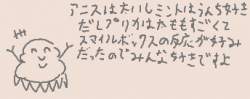 アニスは大いしミントはうんち好き
だしプリカはかももすごくて
スマイルボックスの反応が好み
だったのでみんな好きですよ